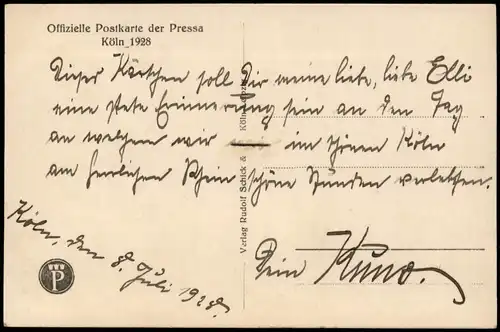 Offizielle Postkarte der Pressa
Köln 1928
Dieses Kärtchen soll Dir meine liebe, liebe Elli
eine stete Erinnerung sein an den Tag
an welchem wir im schönen Köln
am herrlichen Rhein schöne Stunden verlebten.
Köln, den 8. Juli 1928.
Dein Kuno.
Verlag Rudolf Schick & Köln
P